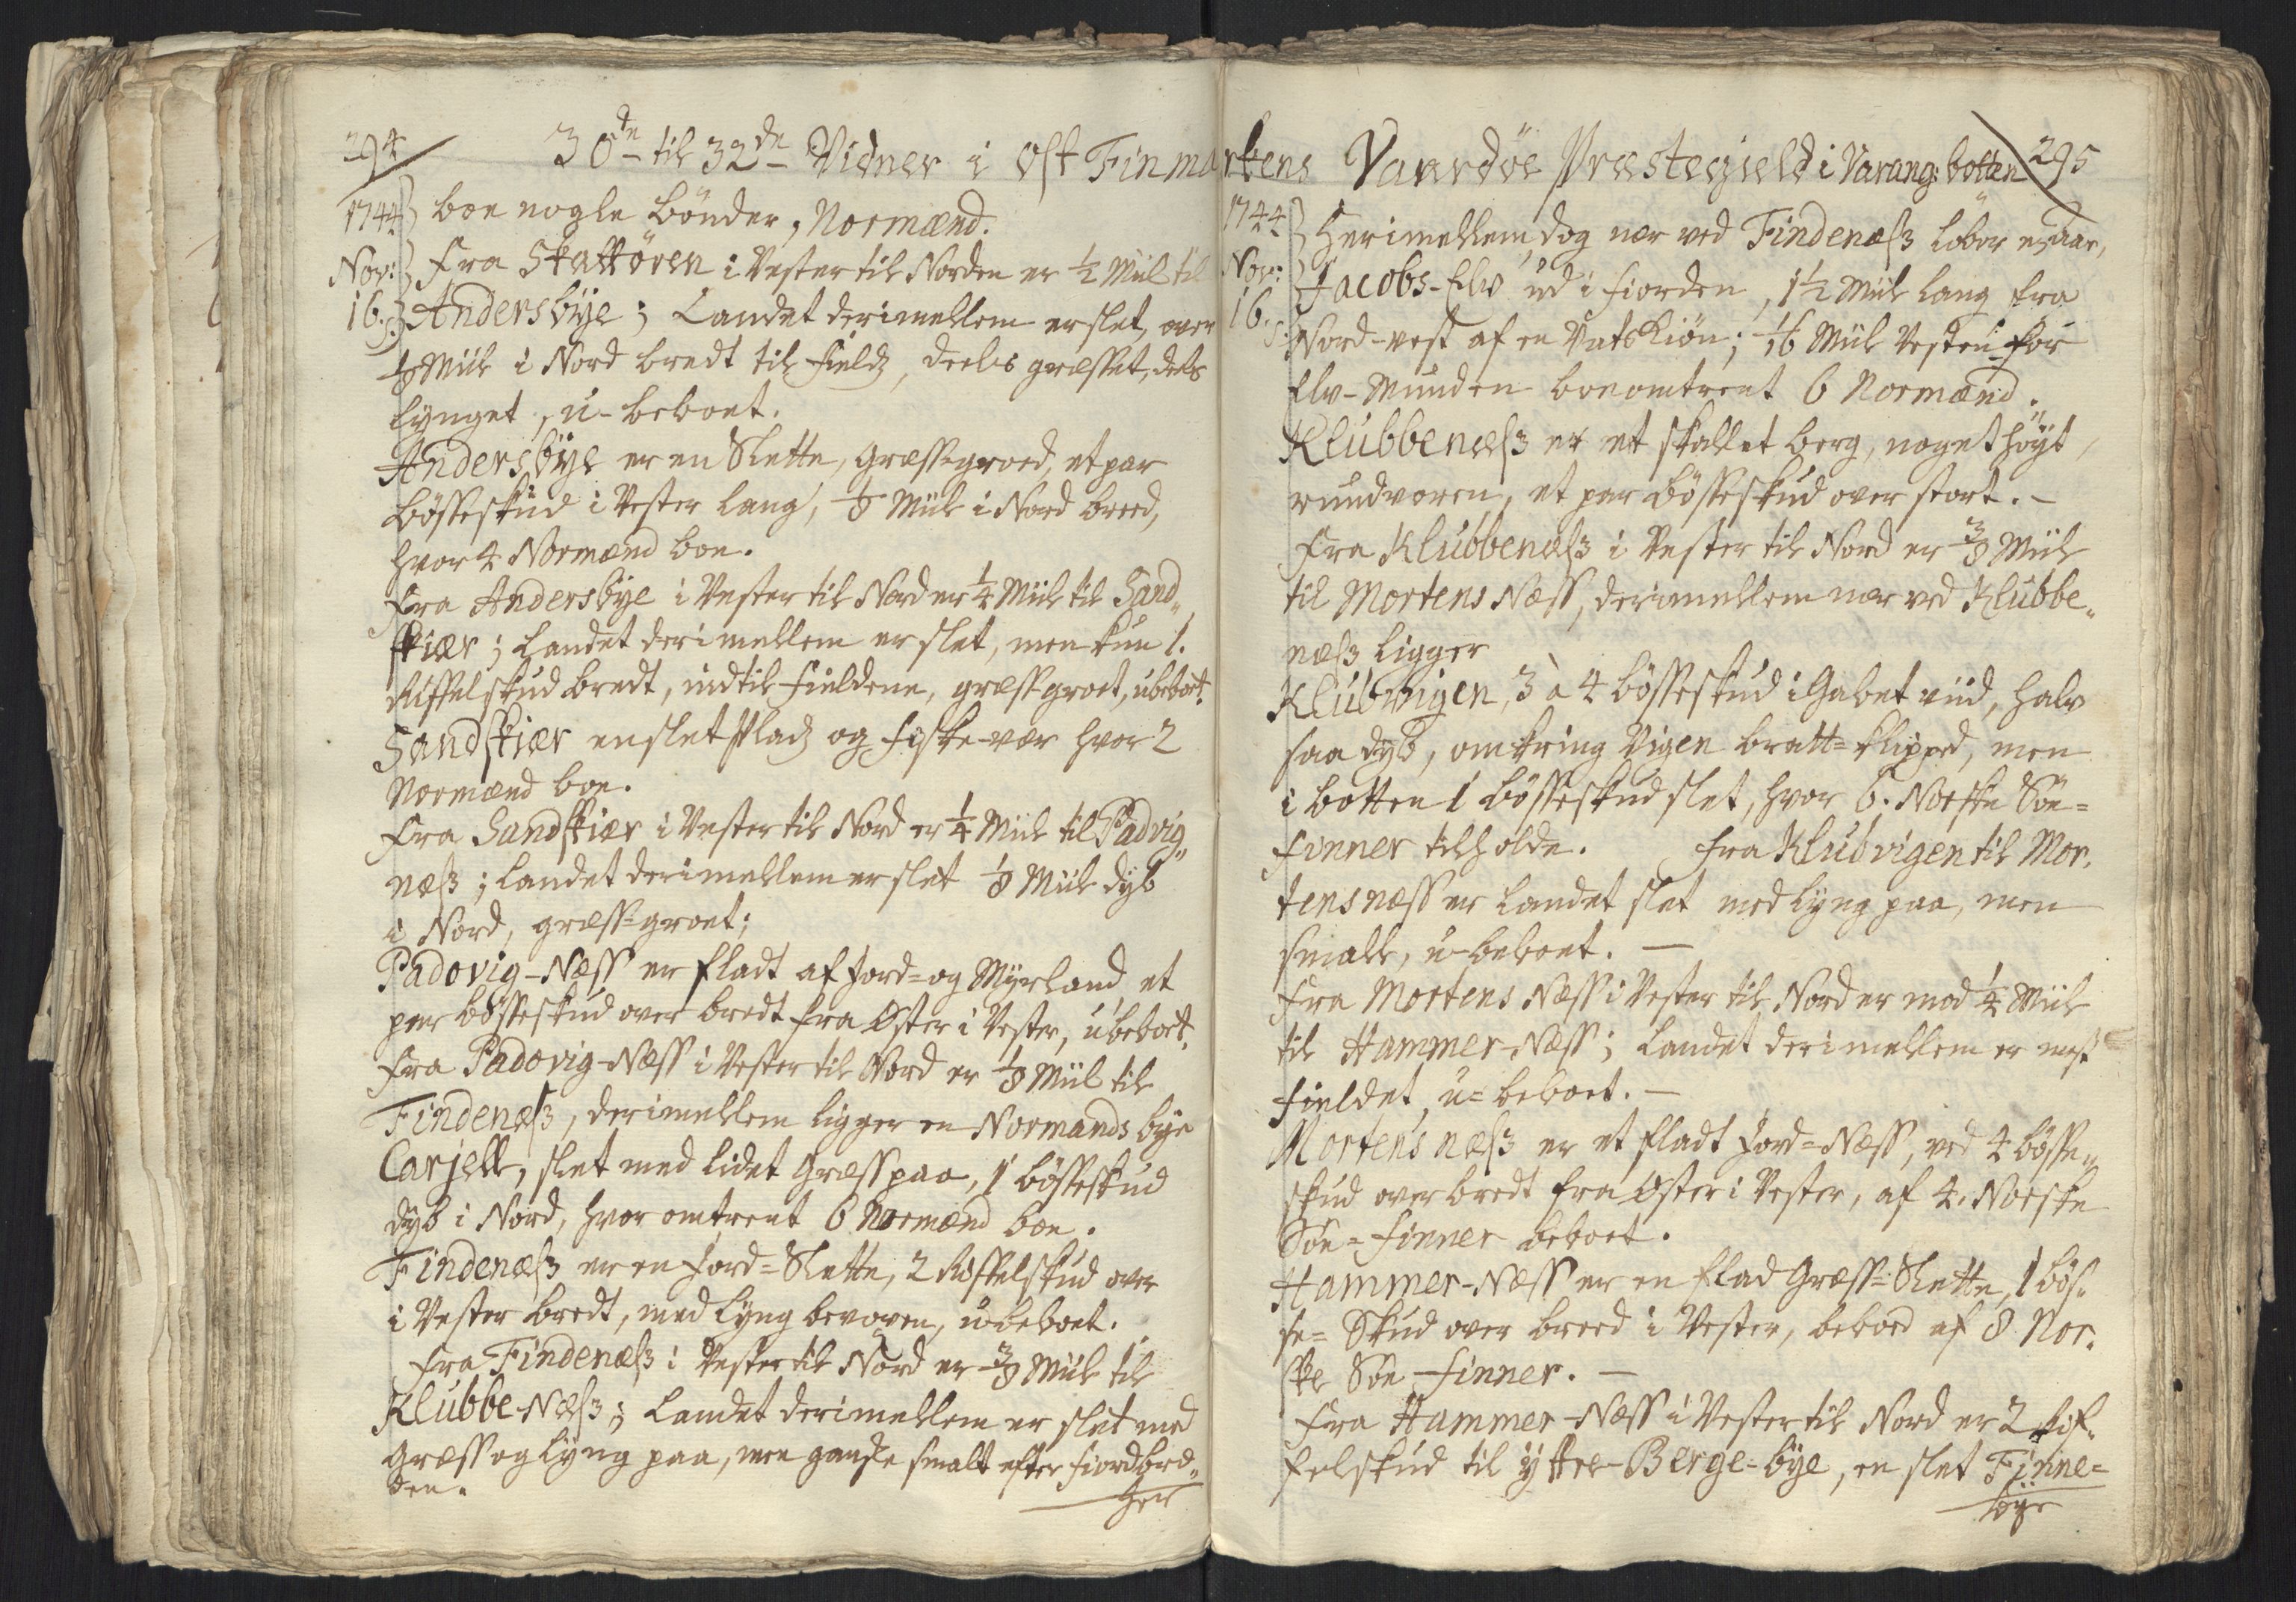 294
30de til 32de Vidner i Ost Finma
1744 boe nogle bönder, Normænd.
Nov: Fra Skattören i Vester til Norden er ½ Miil til
16. Andersbÿe; Landet derimellem er slet, over
⅛ Miil i Nord bredt til Field, deels græsset, deels
lynget, u-beboet.
Andersbÿe er en Slette, græssgroed, et par
bösseskud i Vester lang, ⅛ Miil i Nord breed,
hvor 4 Normænd boe.
Fra Andersbÿe i Vester til Nord er ¼ Miil til Sand„
skiær; Landet derimellem er slet, men kun 1.
Riffelskud bredt, indtil Fieldene, græssgroet, ubeboet.
Sandskiær en slet Plads og Fiske-vær hvor 2
Normænd boe.
Fra Sandskiær i Vester til Nord er ¼ Miil til Padvig„
næß; Landet derimellem er slet ⅛ Miil dyb
i Nord, græss=groet;
Padovig-Næss er fladt af Jord= og Myrland et
par bösseskud over bredt fra Oster i Vester, ubeboet.
Fra Padovig-Næss i Vester til Nord er ⅛ Miil til
Findenæß, derimellem ligger en Normands bye
Carjell, slet med lidet Græss paa, 1 bösseskud
dyb i Nord, hvor omtrent 6 Normænd boe.
Findenæß er en Jord=Slette, 2 Riffelskud over
i Vester bredt, med Lyng bevoxen, u-beboet.
Fra Findenæß i Vester til Nord er ⅜ Miil til
Klubbe-Næß; Landet derimellem er slet med
Græss og Lyng paa, men ganske smalt efter Fiordbred„
den.
Her
rkens Vaardöe Præstegield i Varang: botten 295
1744 Herimellem, dog nær ved Findenæß löber
Nov: Jacobs-Elv ud i Fiorden, 1½ Miil lang fra
16. Nord-vest af en Vatskiön; 1/16 Miil Vesten for
Elv-Munden boe omtrent 6 Normænd.
Klubbenæß er et skallet berg, noget höyt,
rundvoren, et par bösseskud over stort. –
Fra Klubbenæß i Vester til Nord er ⅜ Miil
til Mortens Næss, derimellem nær ved Klubbe„
næß ligger
Klubvigen, 3 à 4 bösseskud i Gabet viid, halv
saa dyb, omkring Vigen bratt=klipped, men
i botten 1 bösseskud slet, hvor 6. Norske Söe=
finner tilholde. Fra Klubvigen til Mor.
tensnæss er Landet slet med Lyng paa, men
smalt, u-beboet. –
Fra Mortens Næss i Vester til Nord er mod ¼ Miil
til Hammer-Næss; Landet derimellem er mest
Fieldet, u=beboet. –
Mortens næß er et fladt Jord=Næss, ved 4 bösse„
skud over bredt fra Oster i Vester, af 4. Norske
Söe=finner beboet.
Hammer-Næss er en flad Græss=Slette, 1 bös„
se=Skud over breed i Vester, beboed af 8 Nor.
ske Söe-finner. –
Fra Hammer-Næss i Vester til Nord er 2 Rif„
felskud til ÿttre-Berge=bÿe, en slet Finne=
bÿe